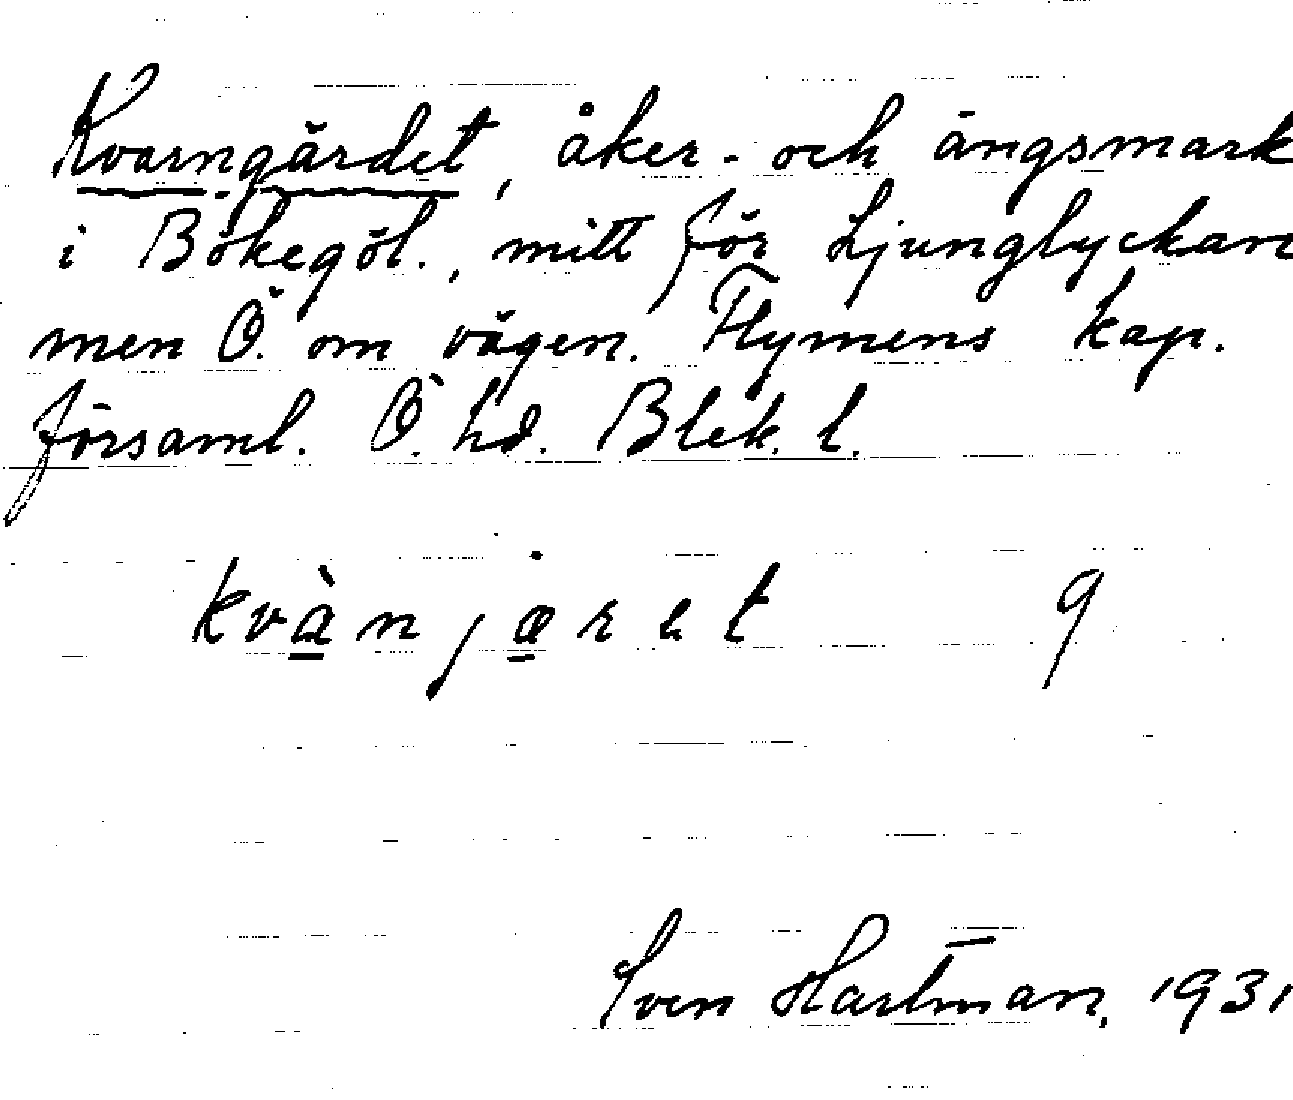 Kvarngärdet, åker- och ängsmark
i Bökegöl., mitt för Ljunglyckan
men Ö. om vägen. Flymens kap.
församl. Ö. hd. Blek. l.
kvànjæret 9
Sven Hartman, 1931